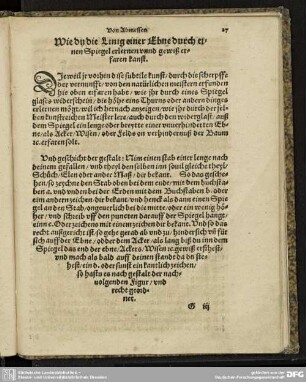 Von Abmessen. 27
Wie du die Linig einer Ebne durch ei-
nen Spiegel erlernen unnd gewiß er-
faren kanst.
DJeweil jr vorhen dise subtile kunst / durch die scherpffe
der vernunfft / von den natürlichen meistern erfunden
hie oben erfaren habt / wie ihr durch eines Spiegel
glases widerschein / die höhe eins Thurns oder andern dinges
erlernen möget / wil ich hernach anzeigen / wie ihr durch derselben
kunstreichen Meister lere / auch durch den widerglast / auß
dem Spiegel ein lenge oder breytte einer unuerhinderten Eb-
ne / als Acker / Wisen / oder Feldes on verhindernuß der Baum
ec. erfaren solt.
Und geschicht der gestalt: Nim einen stab einer lenge nach
deinem gefallen / und theyl den selben inn souil gleiche theyl /
Schůch / Elen oder ander Maß / dir bekant. So das gesche-
hen / so zeychne den Stab oben bei dem ende / mit dem buchsta-
ben a. und unden bei der Erden mit dem Buchstaben b. oder
eim anderen zeichen dir bekant /
an der Stab / ongeuerlich bei die mitte / oder ein wenig hö-
her / und schreib uff den puncten darauff der Spiegel hangt /
ein c. Oder zeichene mit einem zeichen dir bekant. Und so das
recht außgericht ist / so gehe gerad ab und zu / hindersich
auff der Ebne / oder dem Acker / als lang biß du inn dem
Spiegel das end der ebne / Ackers / Wisen ec. gewiß ersihest /
und mach als bald auff deinen stand da du ste-
hest / ein d. oder sunst ein kantlich zeichen /
so hastu es nach gestalt der nach-
volgenden Figur / und
recht geord-
net.
G iij